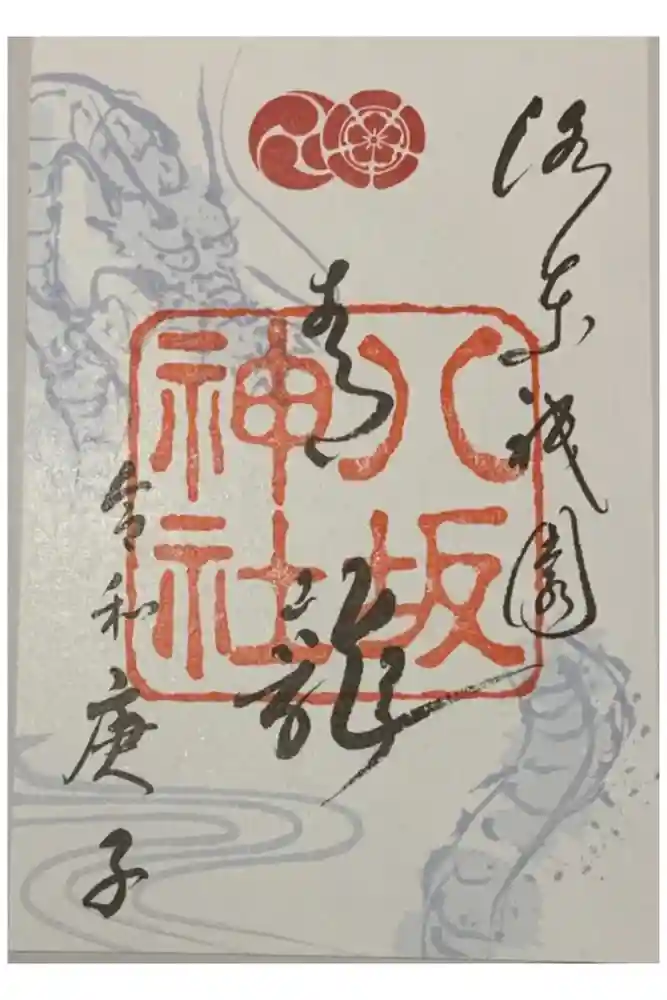 洛東祇園
青龍
令和庚子
八坂
神社